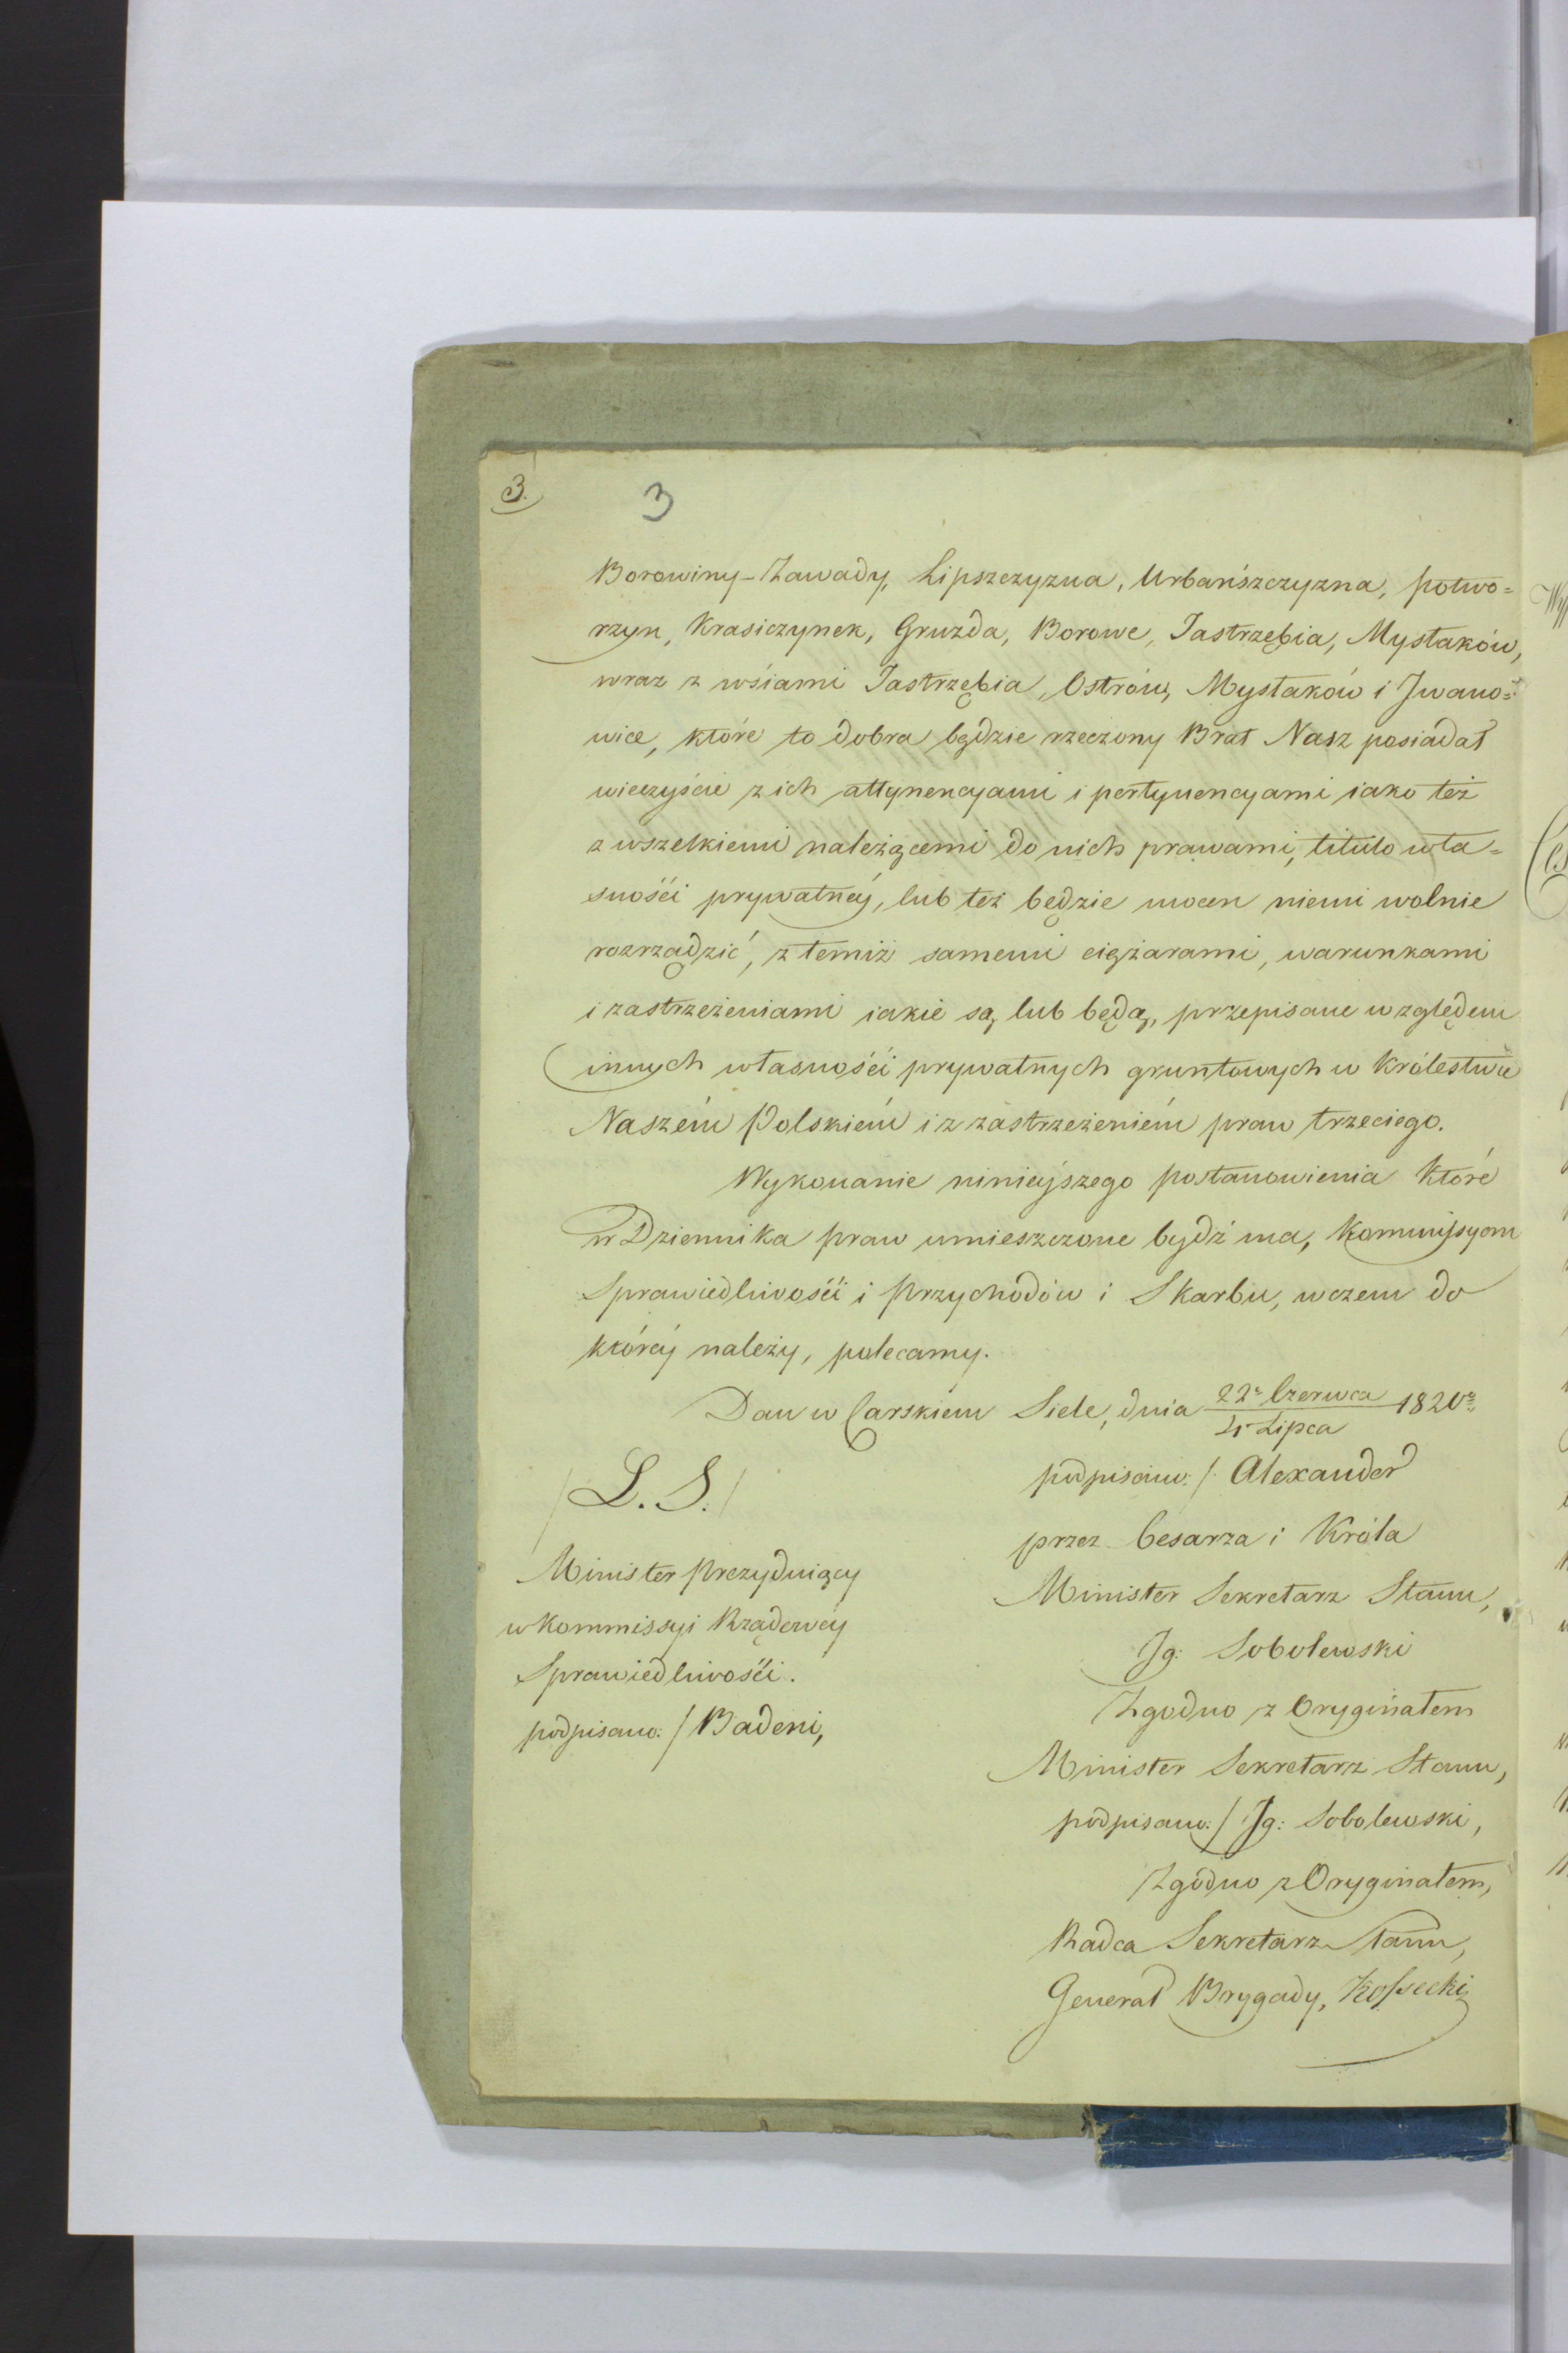 3.
3
Borowiny-Zawady, Lipszczyzna, Urbańszczyzna, potwo=
rzyn, Krasiczynek, Gruzda, Borowe, Jastrzębia, Mysłaków,
wraz z wsiami Jastrzębia, Ostrów, Mysłaków i Iwano=
wice, które to dobra będzie rzeczony Brat Nasz posiadał
wieczyście z ich attynencyami i pertynencyami iako też
z wszelkiemi należącemi do nich prawami, titulo wła=
sności prywatnéj, lub też będzie mocen niemi wolnie
rozrządzić, z temiż samemi ciężarami, warunkami
i zastrzeżeniami iakie są, lub będą, przepisane względem
innych własności prywatnych gruntowych w Królestwie
Naszém Polskiém i z zastrzeżeniém praw trzeciego.
Wykonanie ninieyszego postanowienia które
w Dziennika praw umieszczone bydź ma, Kommissyom
Sprawiedliwości i Przychodów i Skarbu, w czem do
któréj należy, polecamy.
Dan w Carskiem Siele, dnia 22. Czerwca / 4 Lipca 1820 r.
L. S.
podpisano: / Alexander
przez Cesarza i Króla
Minister Sekretarz Stanu,
Ig: Sobolewski
Minister Prezyduiący
w Kommissyi Rządowéj
Sprawiedliwości.
podpisano: / Badeni,
Zgodno z Oryginałem
Minister Sekretarz Stanu,
podpisano: / Ig: Sobolewski,
Zgodno z Oryginałem,
Radca Sekretarz Stanu,
Generał Brygady, Kossecki